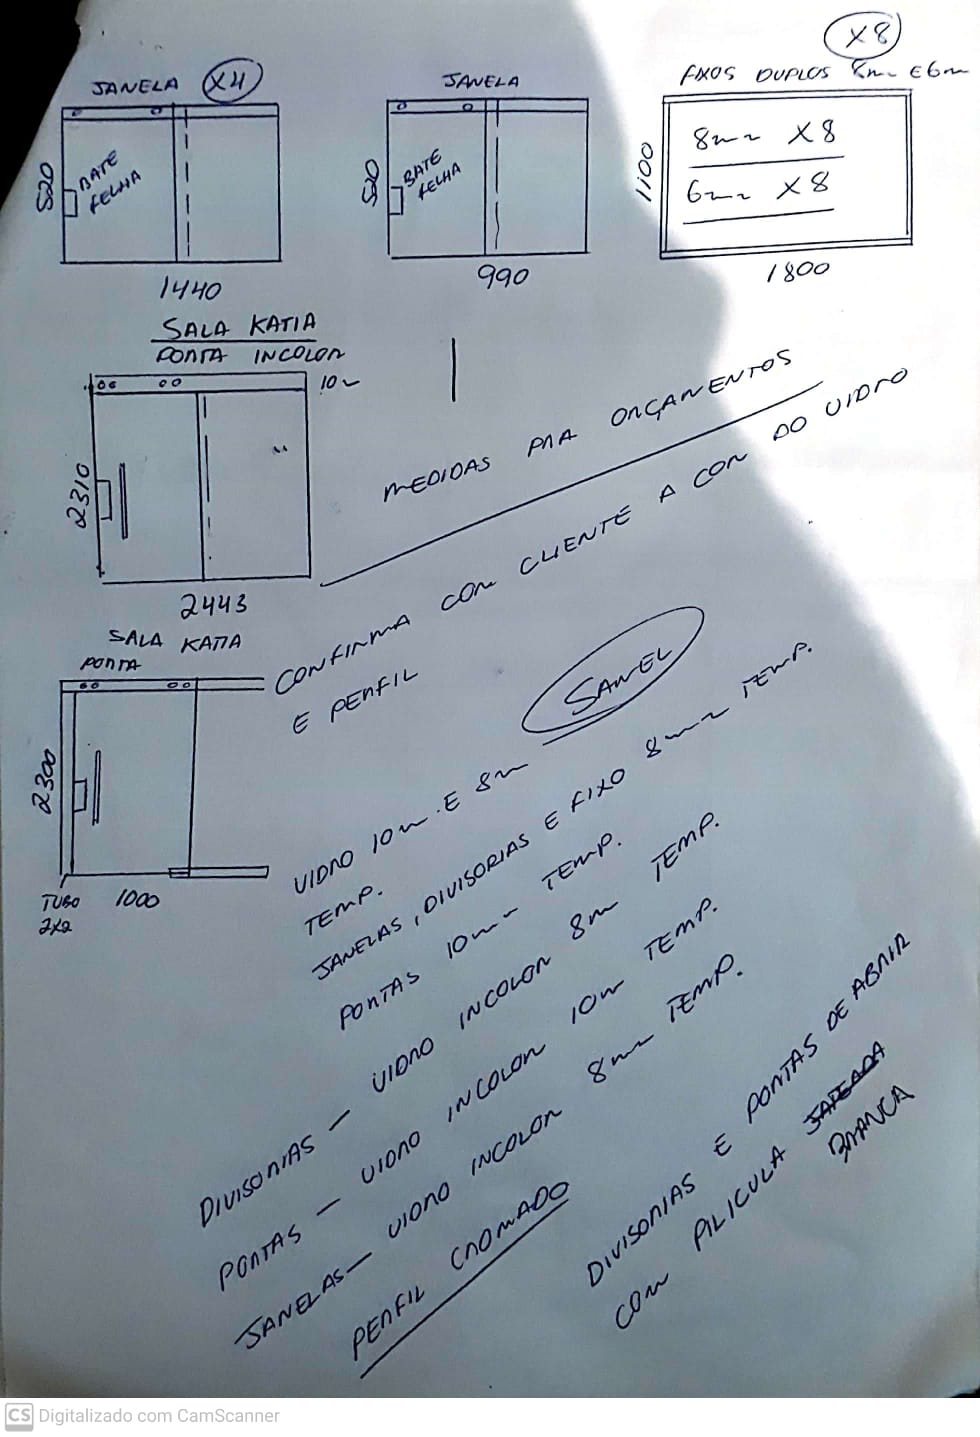 X8
JANELA X4
JANELA
FIXOS DUPLOS 8mm E 6m
520
BATE
FELHA
1440
520
BATE
FELHA
990
1100
8mm X8
6mm X8
1800
SALA KATIA
PORTA INCOLOR
10m
2310
2443
MEDIDAS PRA ORÇAMENTOS
CONFIRMA COM CLIENTE A COR DO VIDRO
E PERFIL
SALA KATIA
PORTA
2300
TUBO
2X2
1000
VIDRO 10m E 8m
TEMP.
JANELAS, DIVISORIAS E FIXO 8mm TEMP.
PORTAS 10mm TEMP.
DIVISORIAS - VIDRO INCOLOR 8m TEMP.
PORTAS - VIDRO INCOLOR 10m TEMP.
JANELAS - VIDRO INCOLOR 8mm TEMP.
PERFIL CROMADO
DIVISORIAS E PORTAS DE ABRIR
COM PILICULA JATEADA
BRANCA
CS Digitalizado com CamScanner